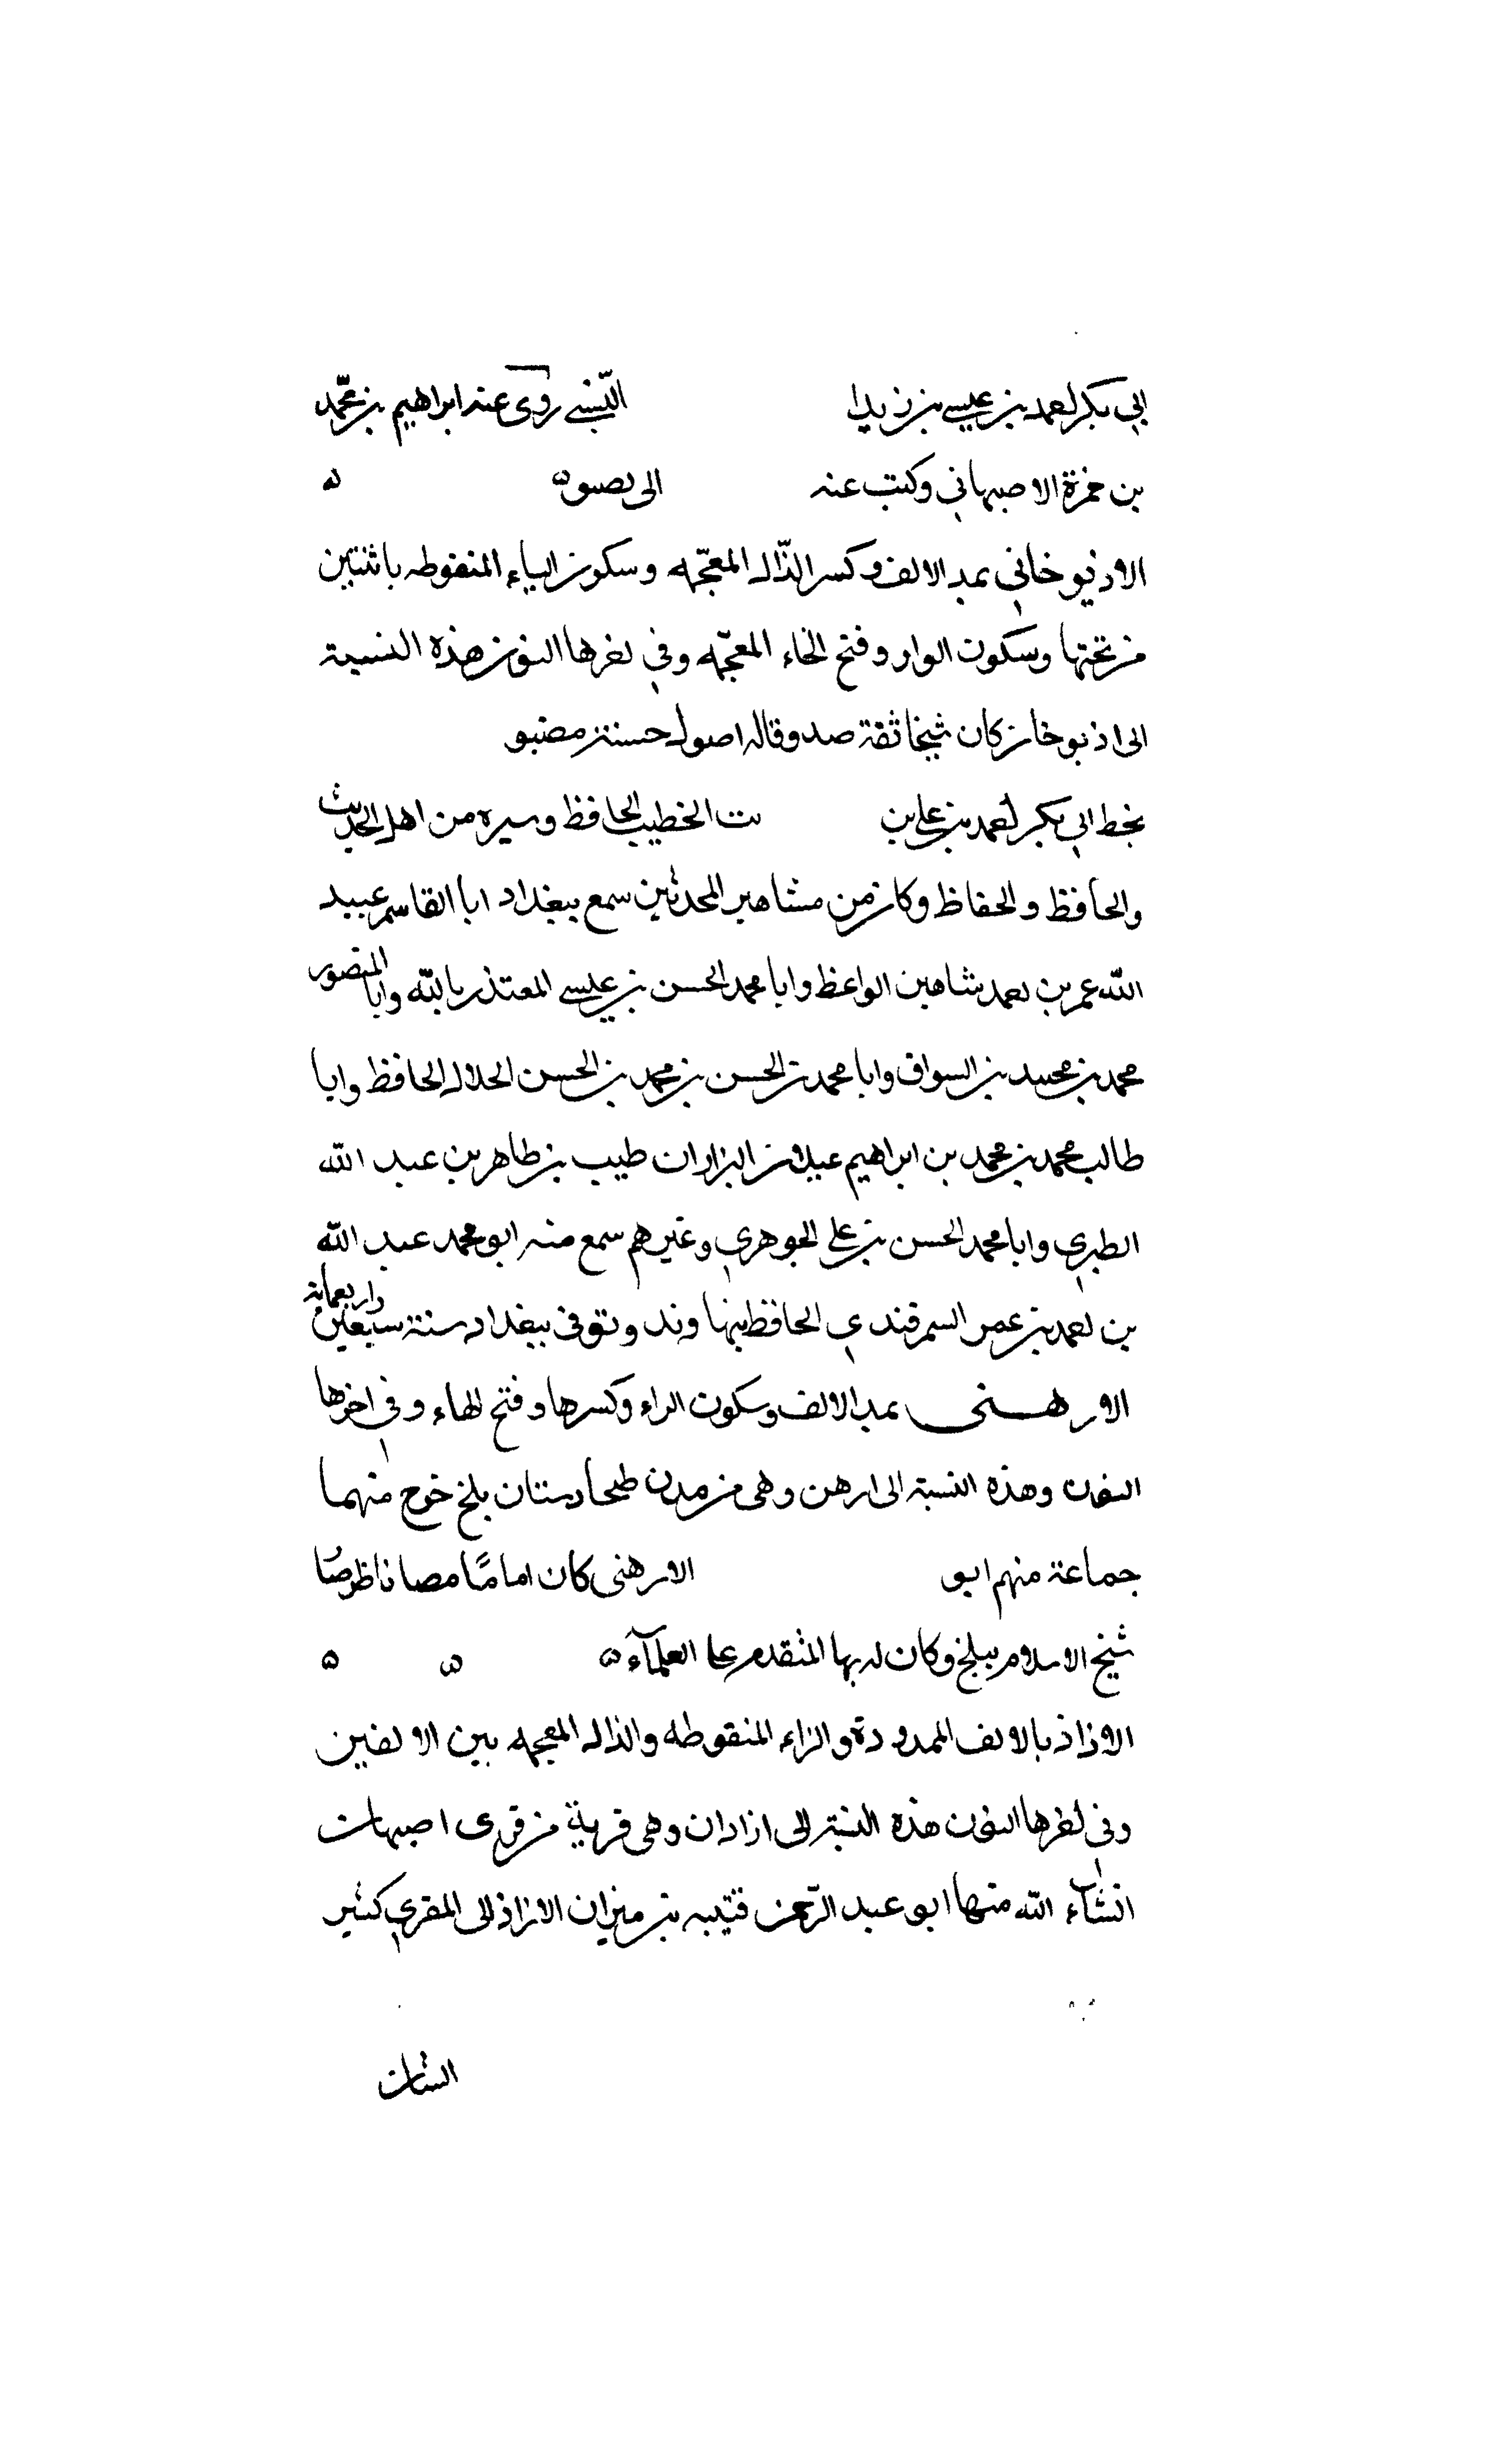 ابي بكر احمد بن عيسى بن زيدا التنيسي روى عنه ابراهيم بن محمد
بن حمزة الاصبهاني وكتب عنه الى
الاذيوخاني بمد الالف وكسر الذال المعجمه وسكون الياء المنقوطه باثنتين
من تحتها وسكون الواو وفتح الخاء المعجمه وفي اخرها النون هذه النسبة
الى اذيوخان كان شيخا ثقة صدوقا له اصول حسنة مضبو
بخط ابي بكر احمد بن علي بن ت الخطيب الحافظ وسيره من اهل الحديث
والحافظ والحفاظ وكان من مشاهير المحدثين سمع ببغداد ابا القاسم عبيد
الله عمر بن احمد شاهين الواعظ وابا محمد الحسن بن عيسى المعتذر بالله وابا المنصور
محمد بن محمد بن السواق وابا محمد بن الحسن بن محمد بن الحسن الحلال الحافظ وابا
طالب محمد بن محمد بن ابراهيم البزار ان طيب بن طاهر بن عبد الله
الطبري وابا محمد الحسن بن علي الجوهري وغيرهم سمع منه ابو محمد عبد الله
بن احمد بن عمر السمرقندي الحافظ بنهاوند وتوفى ببغداد سنة سبعين واربعماية
الارهنى بمد الالف وسكون الراء وكسرها وفتح الهاء وفي اخرها
النون وهذه النسبة الى ارهن وهى من مدن طخارستان بلخ خرج منهما
جماعة منهم ابو الارهنى كان اماما مصا ناظرصا
شيخ الاسلام ببلخ وكان له بها المتقدم على العلمآء
الازاذ بالالف الممدودة والزاء المنقوطه والذال المعجمه بين الالفين
وفي اخرها النون هذه النسبة الى ازادان وهى قرية من قرى اصبهان
انشاء الله منها ابو عبد الرحمن قتيبه بن مهران الازاذانى المقري كثير
الشان